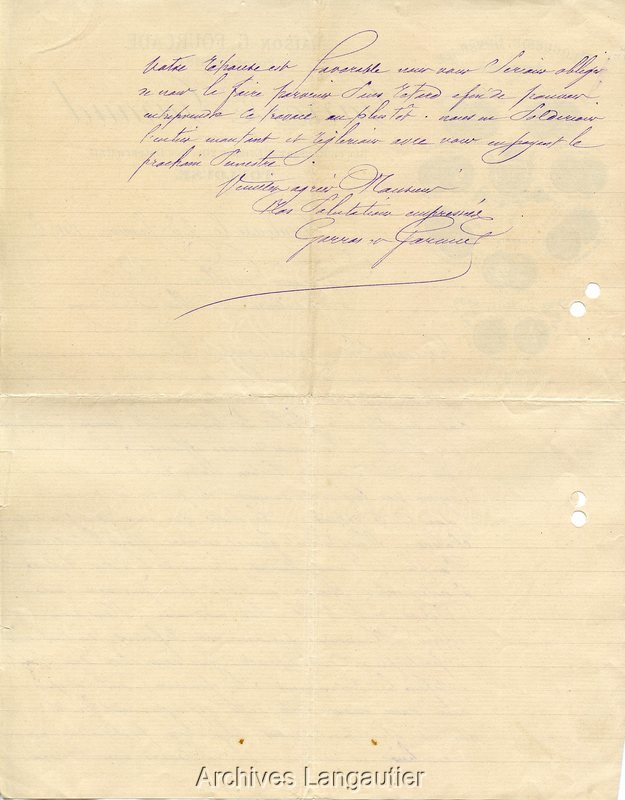 votre réponse est favorable nous vous serions obligé
de nous le faire parvenir sans retard afin de pouvoir
entreprendre le travail au plus tôt. nous en solderions
l'entier montant et règlerions avec vous en payant le
prochain semestre.
Veuillez agréer Monsieur
Nos Salutations empressées
MAISON G. FOURCADE
Archives Langautier